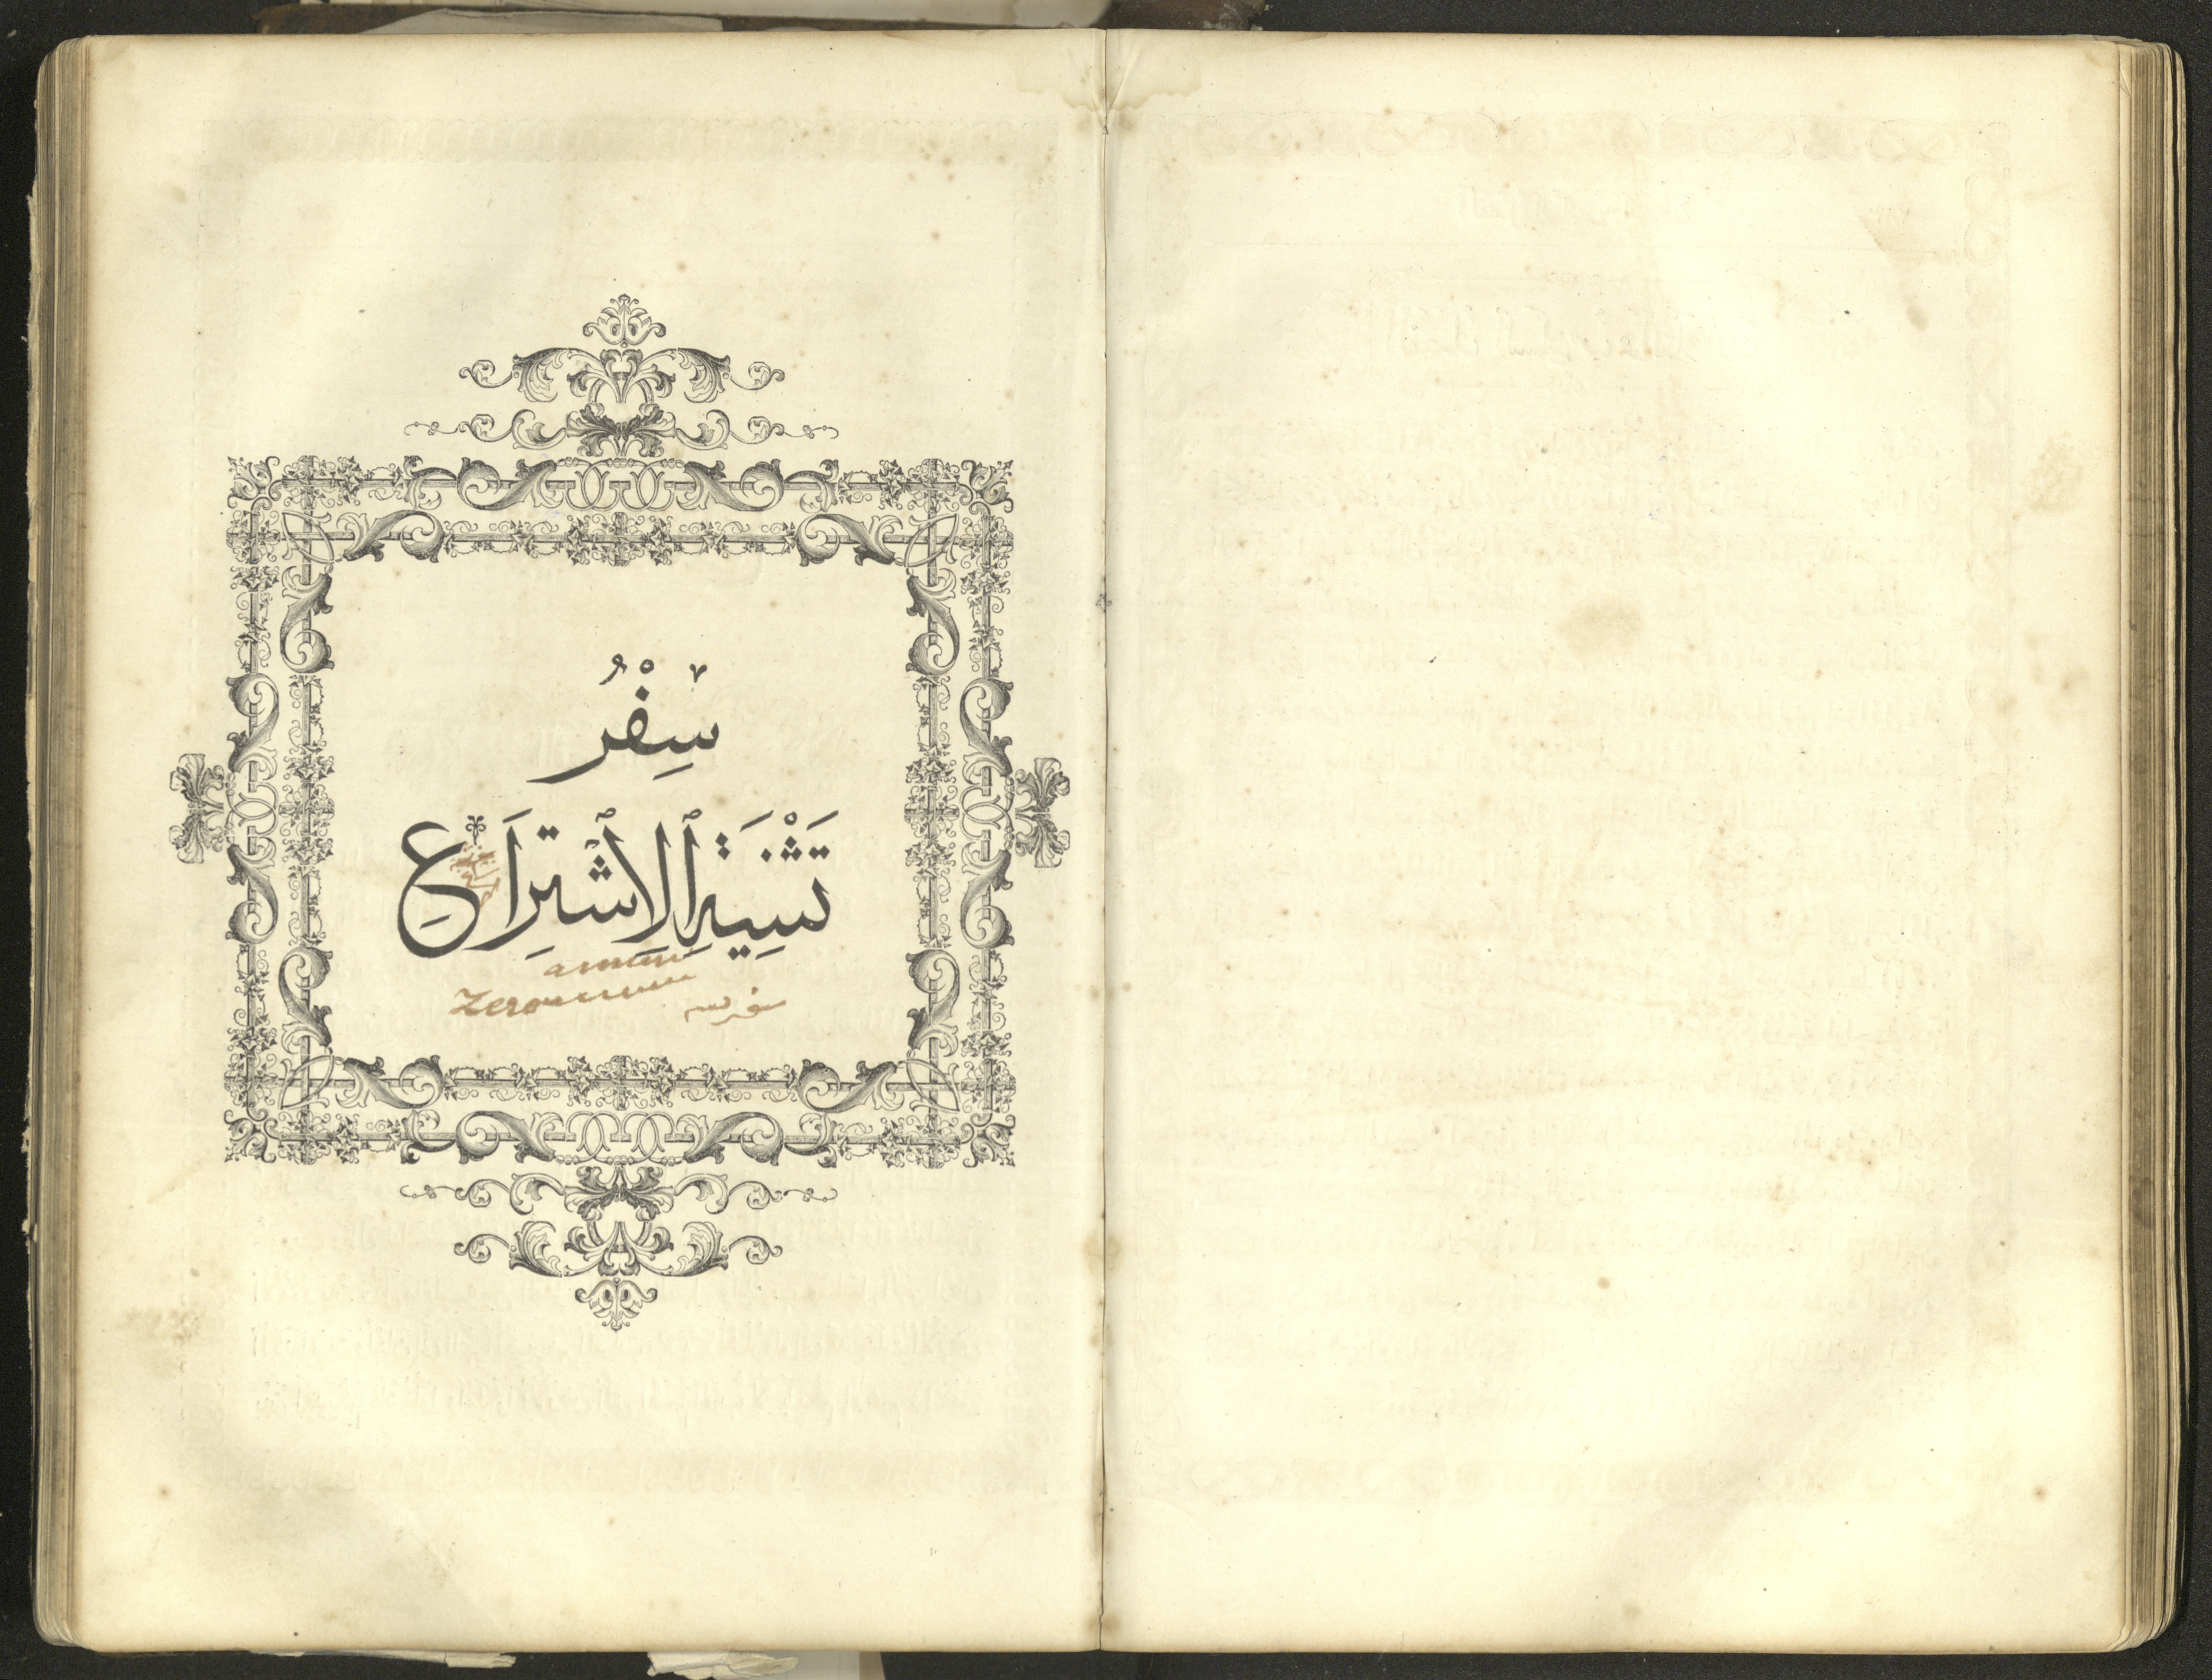 سِفْرُ
تَثْنِيَةِ ٱلِٱشْتِرَاعِ
Zero
سفر